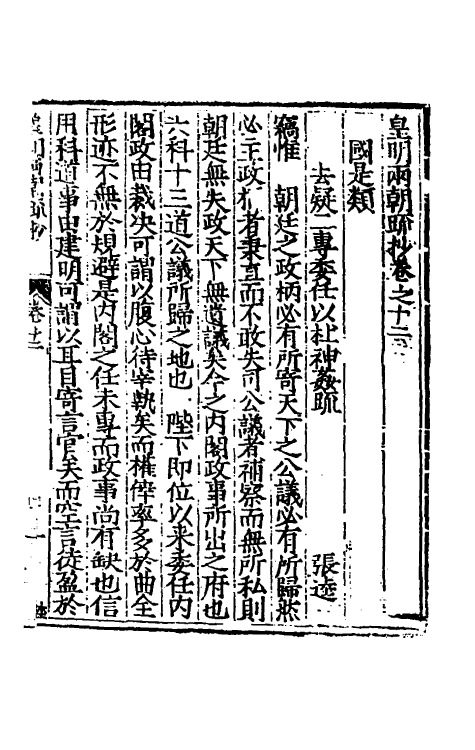 皇明兩朝疏抄卷之十二
國是類
去疑二專委任以杜神姦疏 張逵
竊惟 朝廷之政柄必有所寄天下之公議必有所歸然
必主政柄者秉直而不敢失司公議者補察而無所私則
朝廷無失政天下無遺議矣今之內閣政事所出之府也
六科十三道公議所歸之地也 陛下即位以來委任內
閣政由裁决可謂以腹心待宰執矣而權倖率多於曲全
形迹不無於規避是內閣之任未專而政事尚有缺也信
用科道事由建明可謂以耳目寄言官矣而空言徒盈於
皇明兩朝疏抄 卷十二